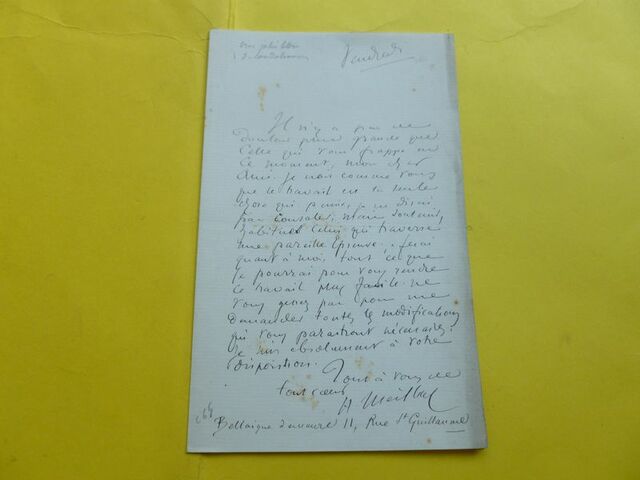 Vendredi
Il n'y a pas de
douleur plus grande que
celle qui vous frappe en
ce moment, mon cher
Ami. Je crois comme vous
que le travail est la seule
chose qui puisse, je ne dirai
pas consoler, mais soutenir
celui qui traverse
une pareille épreuve. Je ferai
quant à moi, tout ce que
je pourrai pour vous rendre
ce travail plus facile. ne
vous gênez pas pour me
demander toutes les modifications
qui vous paraîtront nécessaires.
Je suis absolument à votre
disposition.
Tout à vous de
tout cœur
H Meilhac
Bellaigue 11, Rue St Guillaume